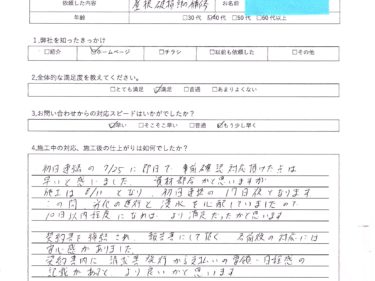 依頼した内容 屋根破損部の補修 お名前
年齢 □30代 ☑40代 □50代 □60代以上
1.弊社を知ったきっかけ
□紹介 ☑ホームページ □チラシ □以前も依頼した □その他
2.全体的な満足度を教えてください。
□とても満足 ☑満足 □普通 □あまりよくない
3.お問い合わせからの対応スピードはいかがでしたか?
☑早い □そこそこ早い □普通 ☑もう少し早く
4.施工中の対応、施工後の仕上がりは如何でしたか?
初回連絡の7/25に即日で事前確認対応頂けた点は
早いと感じました 資材都合かと思いますが
施工は8/11となり 初回連絡の17日後となります
この間 劣化の進行と浸水を心配していましたので
10日以内程度になれば より満足だったかと思います
契約書を締結され 報告書にして頂く 名前役の対応には
安心感がありました
契約書内に 請求書発行から支払いの要領・日程感の
記載があると より良いかと思います